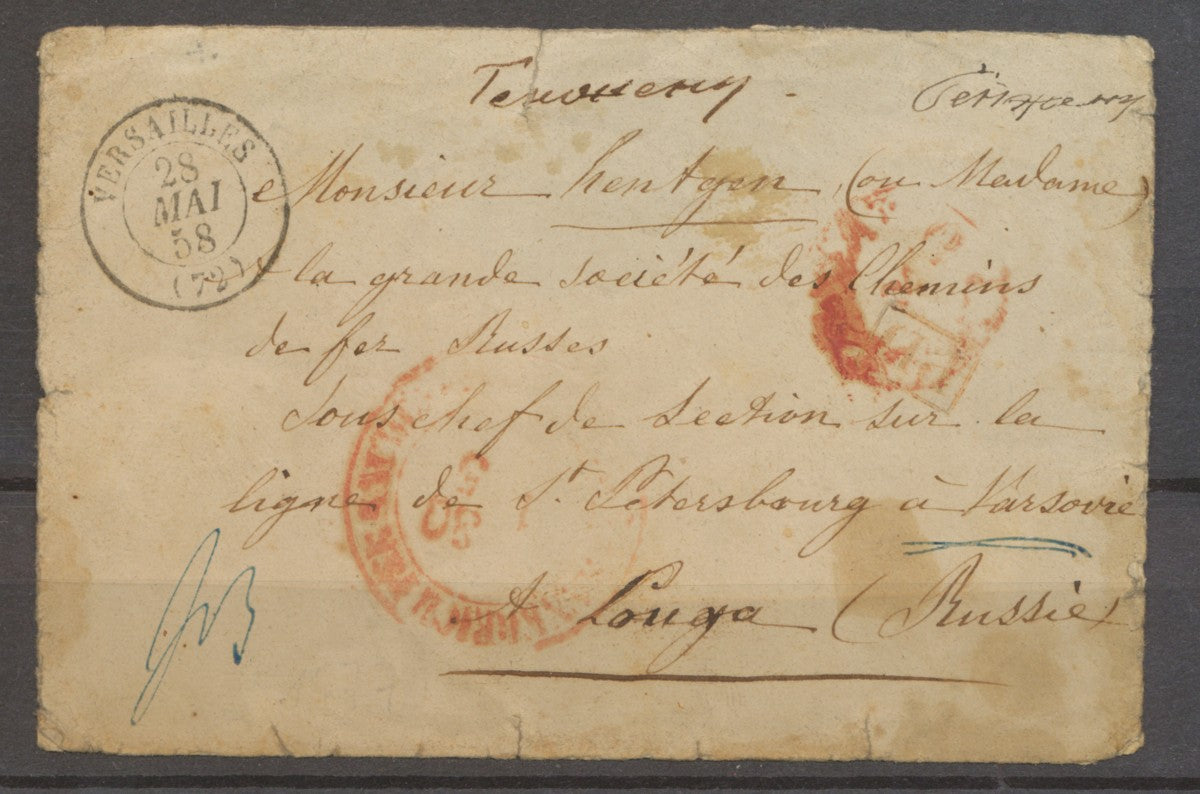 VERSAILLES
28
MAI
58
(72)
Monsieur hentgen (ou Madame)
à la grande société des Chemins
de fer Russes
Sous chef de section sur la
ligne de St Pétersbourg à Varsovie
A Louga (Russie)